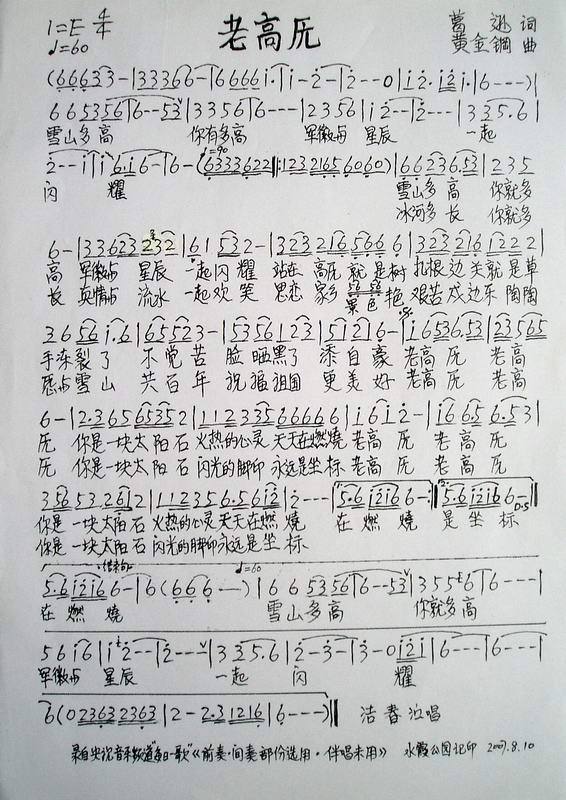 1=E 4/4
♩=60
老高原
葛逊 词
黄金钢 曲
(66633-|333366-|6666i·|i-2-|2---0|i2·i2i·|6---)|
665356|6--53|33556|6---|2356|i2--|2---|335·6|
雪山多高 你有多高 军徽与 星辰 一起
2--i|i6·i6-|6-(6333622‖:1232165 6060)|6623 6·53|235
♩=90
闪 耀 雪山多 高 你就多
冰河多 长 你就多
6-|33623232|61532-|3232165666|323216 1222|
高 军徽与 星辰 一起闪 耀 站在 高原 就 是树 扎根 边 关就 是草
长 真情与 流水 一起欢 笑 思恋 家乡 景色 艳 艰苦 戍 边乐 陶陶
3656i·6|655523-|5356123|51226-|i6536·53|23565
手冻裂了 不觉苦 脸晒黑了 添自豪 老高 原 老高
愿与雪山 共百年 祝福祖国 更美好 老高 原 老高
6-|2·36565352|11233566666|i6i2-|i66·56·53|
原 你是一块太阳石 火热的心灵 天天在燃烧 老高 原 老高 原
原 你是一块太阳石 闪光的脚印 永远是坐标 老高 原 老高 原
35653·262|1123 56·56i2|2---|5·6i2i66-:|5·6i2i66-‖
D.S
你是 一块太阳石 火热的心灵天天在燃 烧 在 燃 烧 是 坐 标
你是 一块太阳石 闪光的脚印永远是坐 标
结束句 ♩=60
5·6i2i66-|6(6666--)|665356|6--53|35 56|6---|
在 燃 烧 雪山多高 你就多高
56i6|i2--|2---|335·6|2-3-|3-0i2i|6---|6---|
军徽与 星辰 一起 闪 耀
6(023632363|2-2·31216|6---)‖ 洁春泣唱
录自央视音乐频道"每日一歌"《前奏·间奏部份选用·伴唱未用》 水霞公园记印 2007.8.10